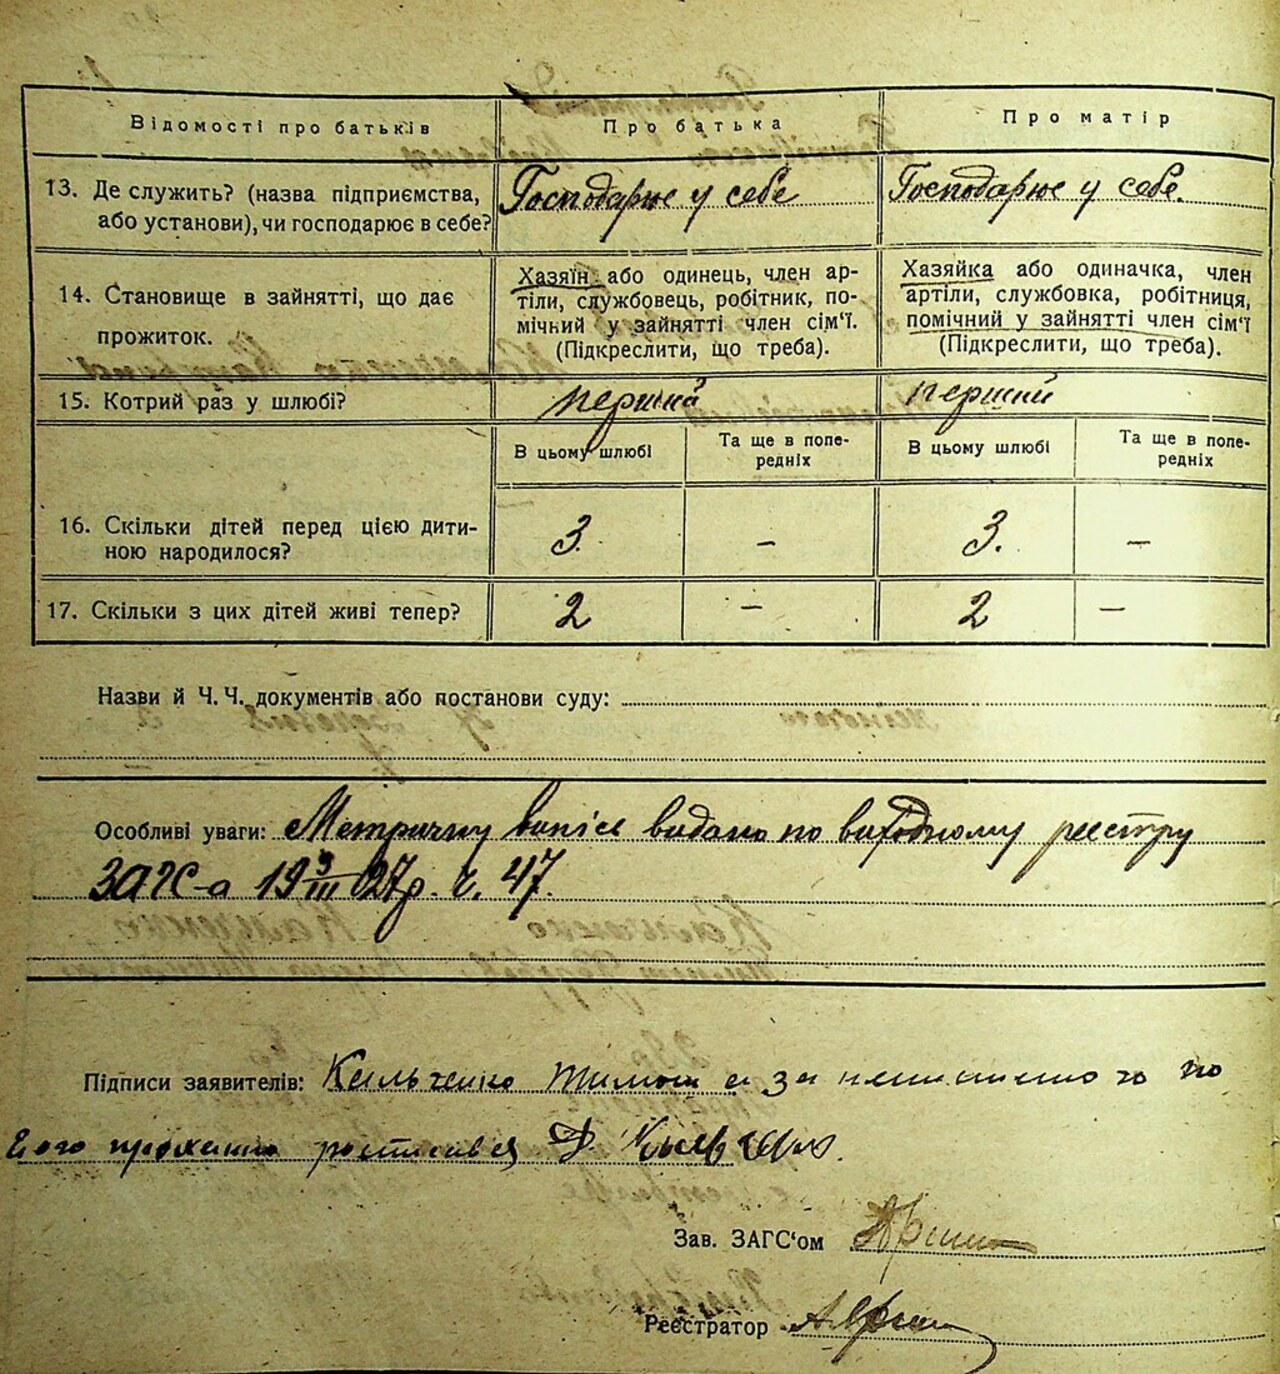 Відомості про батьків
Про батька
Про матір
13. Де служить? (назва підприємства, або установи), чи господарює в себе?
Господарює у себе
Господарює у себе.
14. Становище в зайнятті, що дає прожиток.
Хазяїн або одинець, член ар-
тіли, службовець, робітник, по-
мічний у зайнятті член сім'ї.
(Підкреслити, що треба).
Хазяйка або одиначка, член
артіли, службовка, робітниця,
помічний у зайнятті член сім'ї
(Підкреслити, що треба).
15. Котрий раз у шлюбі?
перший
перший
В цьому шлюбі
Та ще в попе-
редніх
В цьому шлюбі
Та ще в попе-
редніх
16. Скільки дітей перед цією дити-
ною народилося?
3.
–
3.
–
17. Скільки з цих дітей живі тепер?
2
–
2
–
Назви й Ч. Ч. документів або постанови суду:
Особливі уваги: Метричну випісь видано по вихідному реєстру
ЗАГС-а 19 9/III 27 р. ч. 47.
Підписи заявителів: Кильченко Тимош а за неписменого по
його проханню росписався
Зав. ЗАГС'ом
Реєстратор